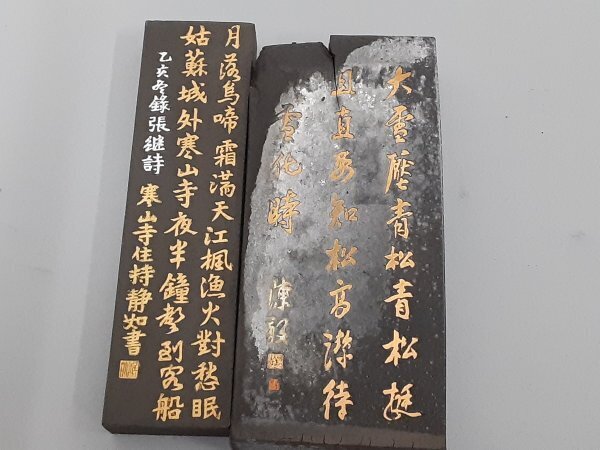 大雪壓青松青松挺
且直要知松高潔待
雪化時
陳毅
月落烏啼霜滿天江楓漁火對愁眠
姑蘇城外寒山寺夜半鐘聲到客船
乙亥冬錄張继詩
寒山寺住持静如書